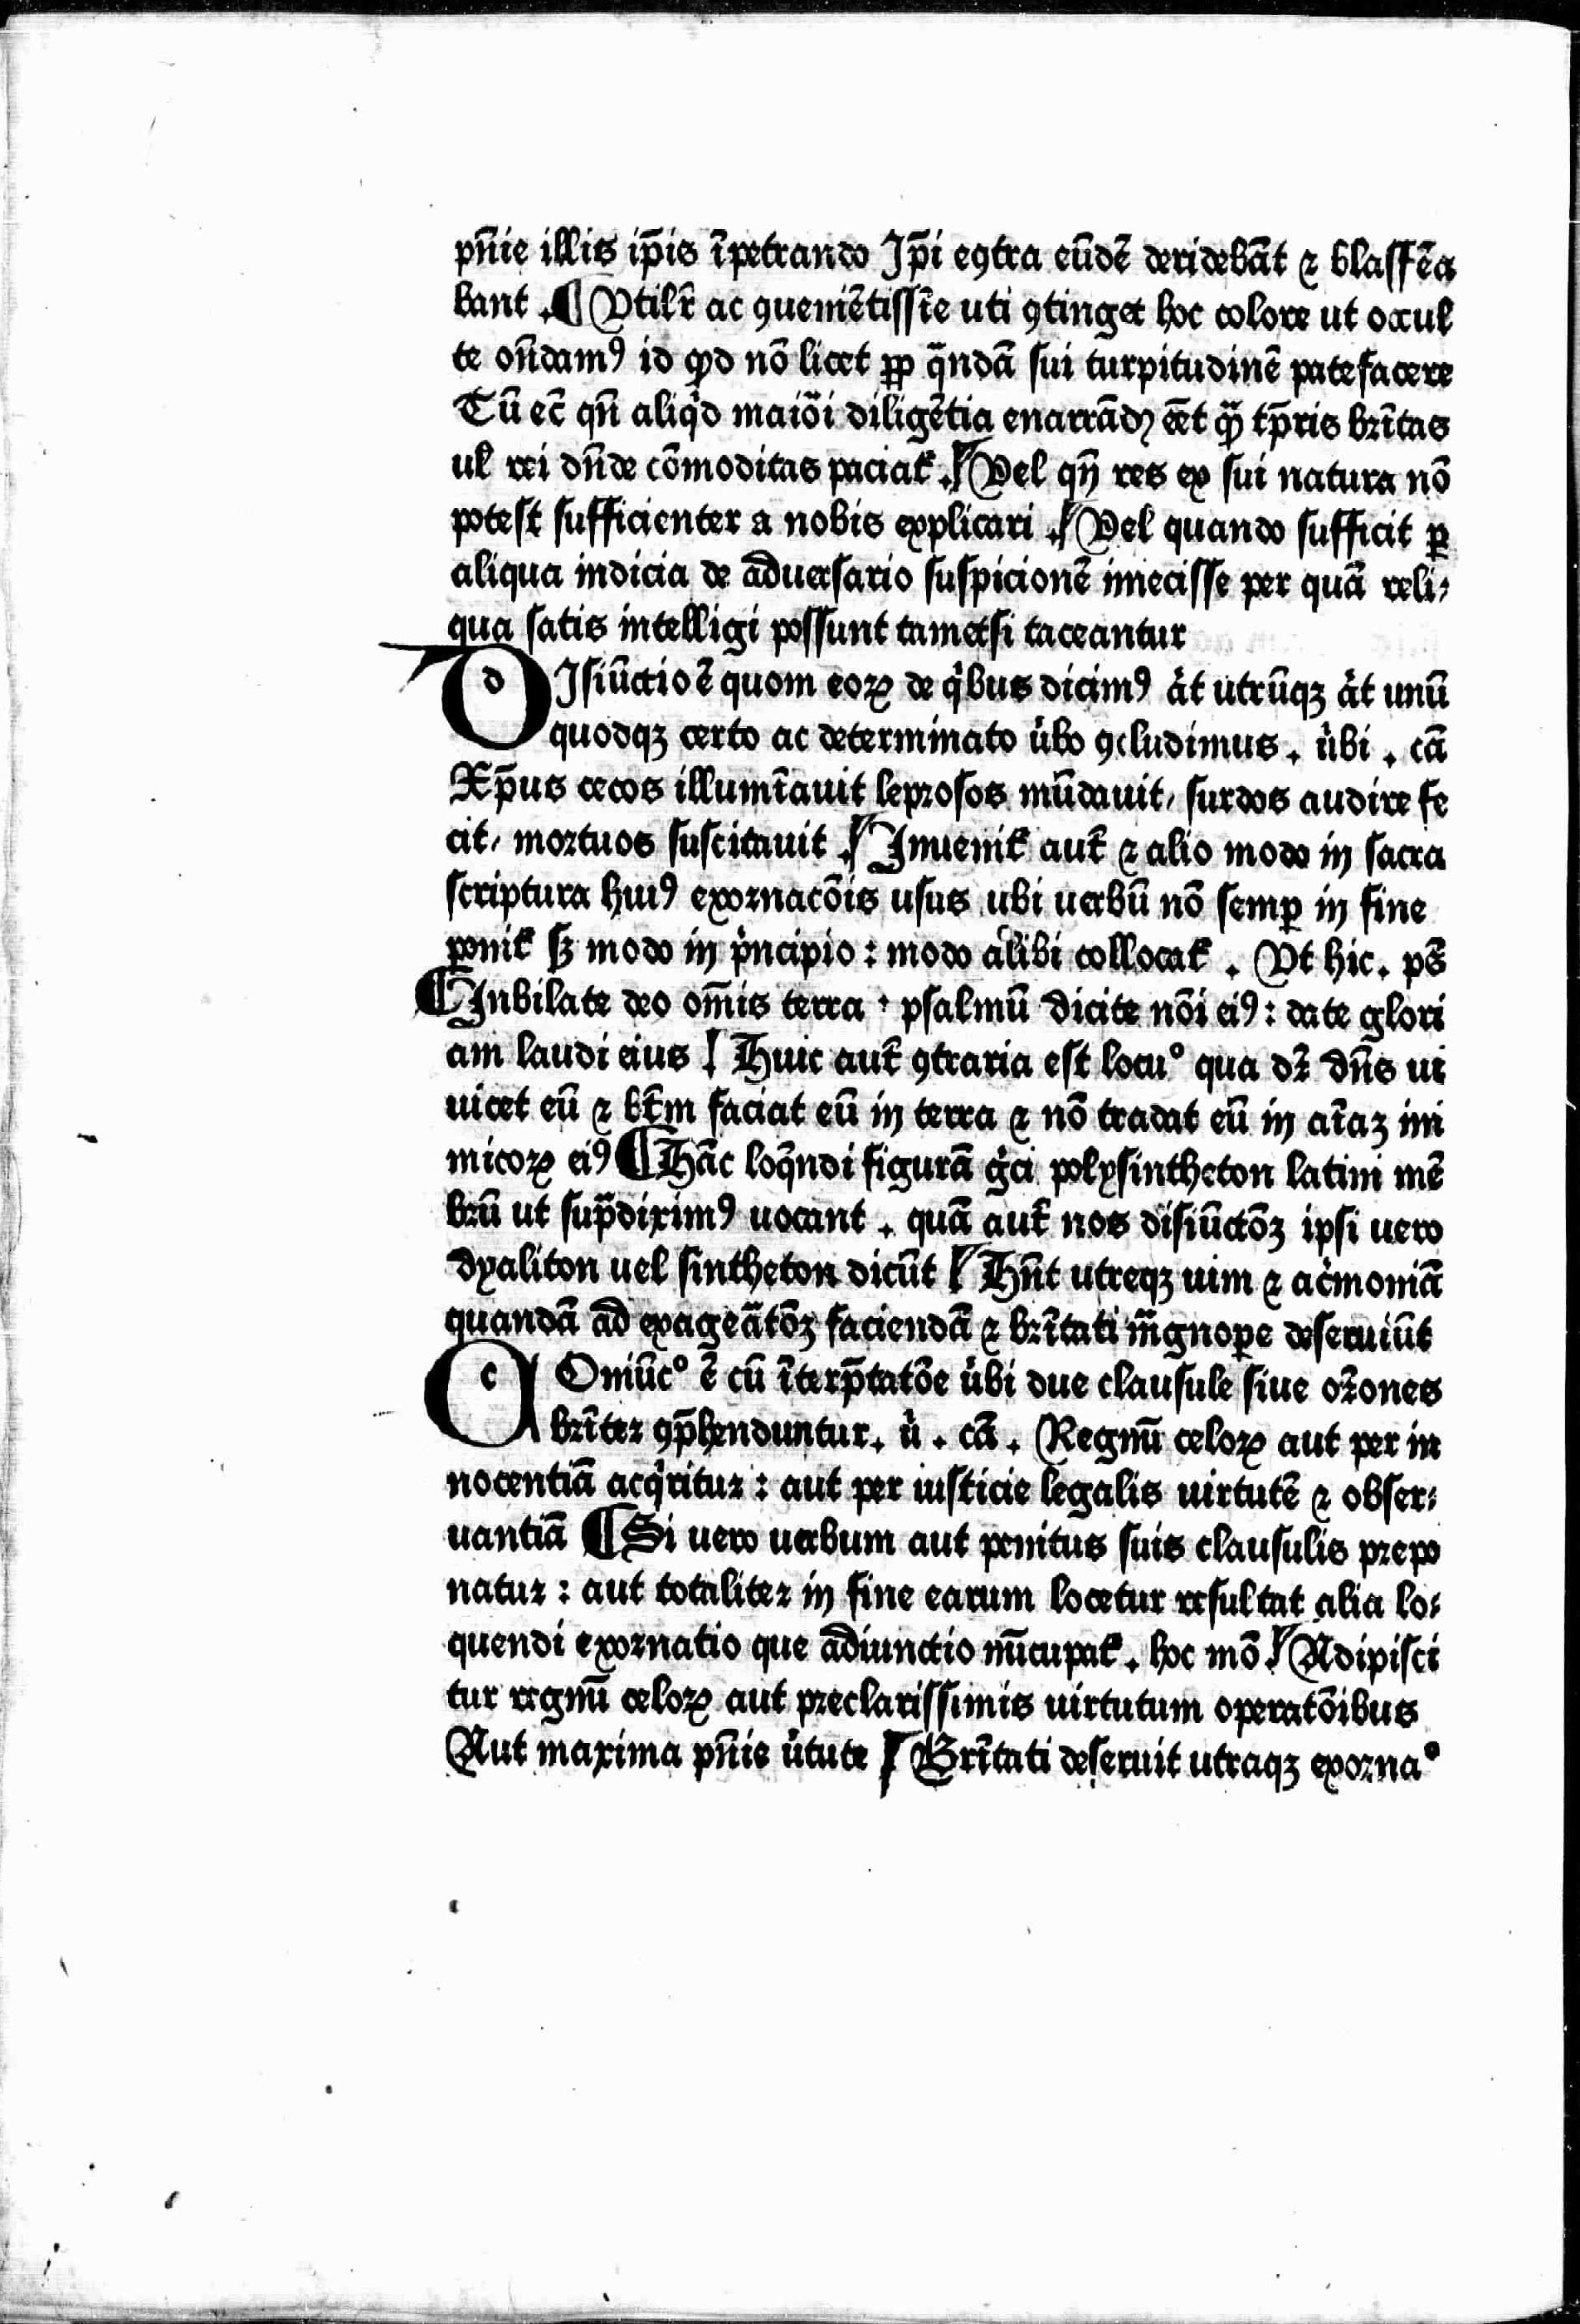 pn̄ie illis ip̄is īpetrando Jp̄i eꝯtra eūdē deridebāt ⁊ blasfēa
bant .¶ Vtilr̄ ac ꝯueniētissīe uti ꝯtinget hoc colore ut occul
te on̄damꝰ id qd̄ nō licet ꝓp q̄ndā sui turpitudinē patefacere
Tū ec̄ qn̄ aliqͥd maiōi diligētia enarrādꝫ eēt qꝫ̄ tp̄ris br̄itas
ul̄ rei dn̄de cōmoditas paciat̄ .¶ Vel qn̄ res ex sui natura nō
potest sufficienter a nobis explicari .¶ Vel quando sufficit ꝑ
aliqua indicia de aduersario suspicionē iniecisse per quā reli⸗
qua satis intelligi possunt tametsi taceantur
dIsiūctio ē quom eoꝝ de qͥbus dicimꝰ āt utrūqꝫ āt unū
quodqꝫ certo ac determinato ūbo ꝯcludimus . ūbi . cā
Xp̄us cecos illumīauit leprosos mūdauit, surdos audire fe
cit, mortuos suscitauit .¶ Jnuenit̄ aut̄ ⁊ alio modo in sacra
scriptura huiꝰ exornacōis usus ubi uerbū nō semꝑ in fine
ponit̄ sꝫ modo in pͥncipio : modo alibi collocat̄ . Vt hic . ps̄
¶Jubilate deo om̄is terra : psalmū dicite nōi eiꝰ : date glori
am laudi eius ¶ Huic aut̄ ꝯtraria est locu° qua dr̄ dn̄s ui
uicet eū ⁊ bt̄m faciat eū in terra ⁊ nō tradat eū in aīaꝫ ini
micoꝝ eiꝰ ¶ Hāc loq̄ndi figurā gͣci polysintheton latini mē
brū ut sup̄diximꝰ uocant . quā aut̄ nos disiūctōꝫ ipsi uero
dyaliton uel sintheton dicūt ¶ Hn̄t utreqꝫ uim ⁊ acͥmoniā
quandā ad exageāt̄oꝫ faciendā ⁊ br̄itati m̄gnoꝑe deseruiūt
cOniūc° ē cū īterp̄tatōe ūbi due clausule siue or̄ones
br̄iter ꝯp̄henduntur . ū . cā . Regnū celoꝝ aut per in
nocentiā acqͥritur : aut per iusticie legalis uirtutē ⁊ obser⸗
uantiā ¶ Si uero uerbum aut penitus suis clausulis prepo
natur : aut totaliter in fine earum locetur resultat alia lo⸗
quendi exornatio que adiunctio nūcupat̄ . hoc mō ¶ Adipisci
tur regnū celoꝝ aut preclarissimis uirtutum operatōibus
Aut maxima pn̄is ūtute ¶ Br̄itati deseruit utraqꝫ exorna°